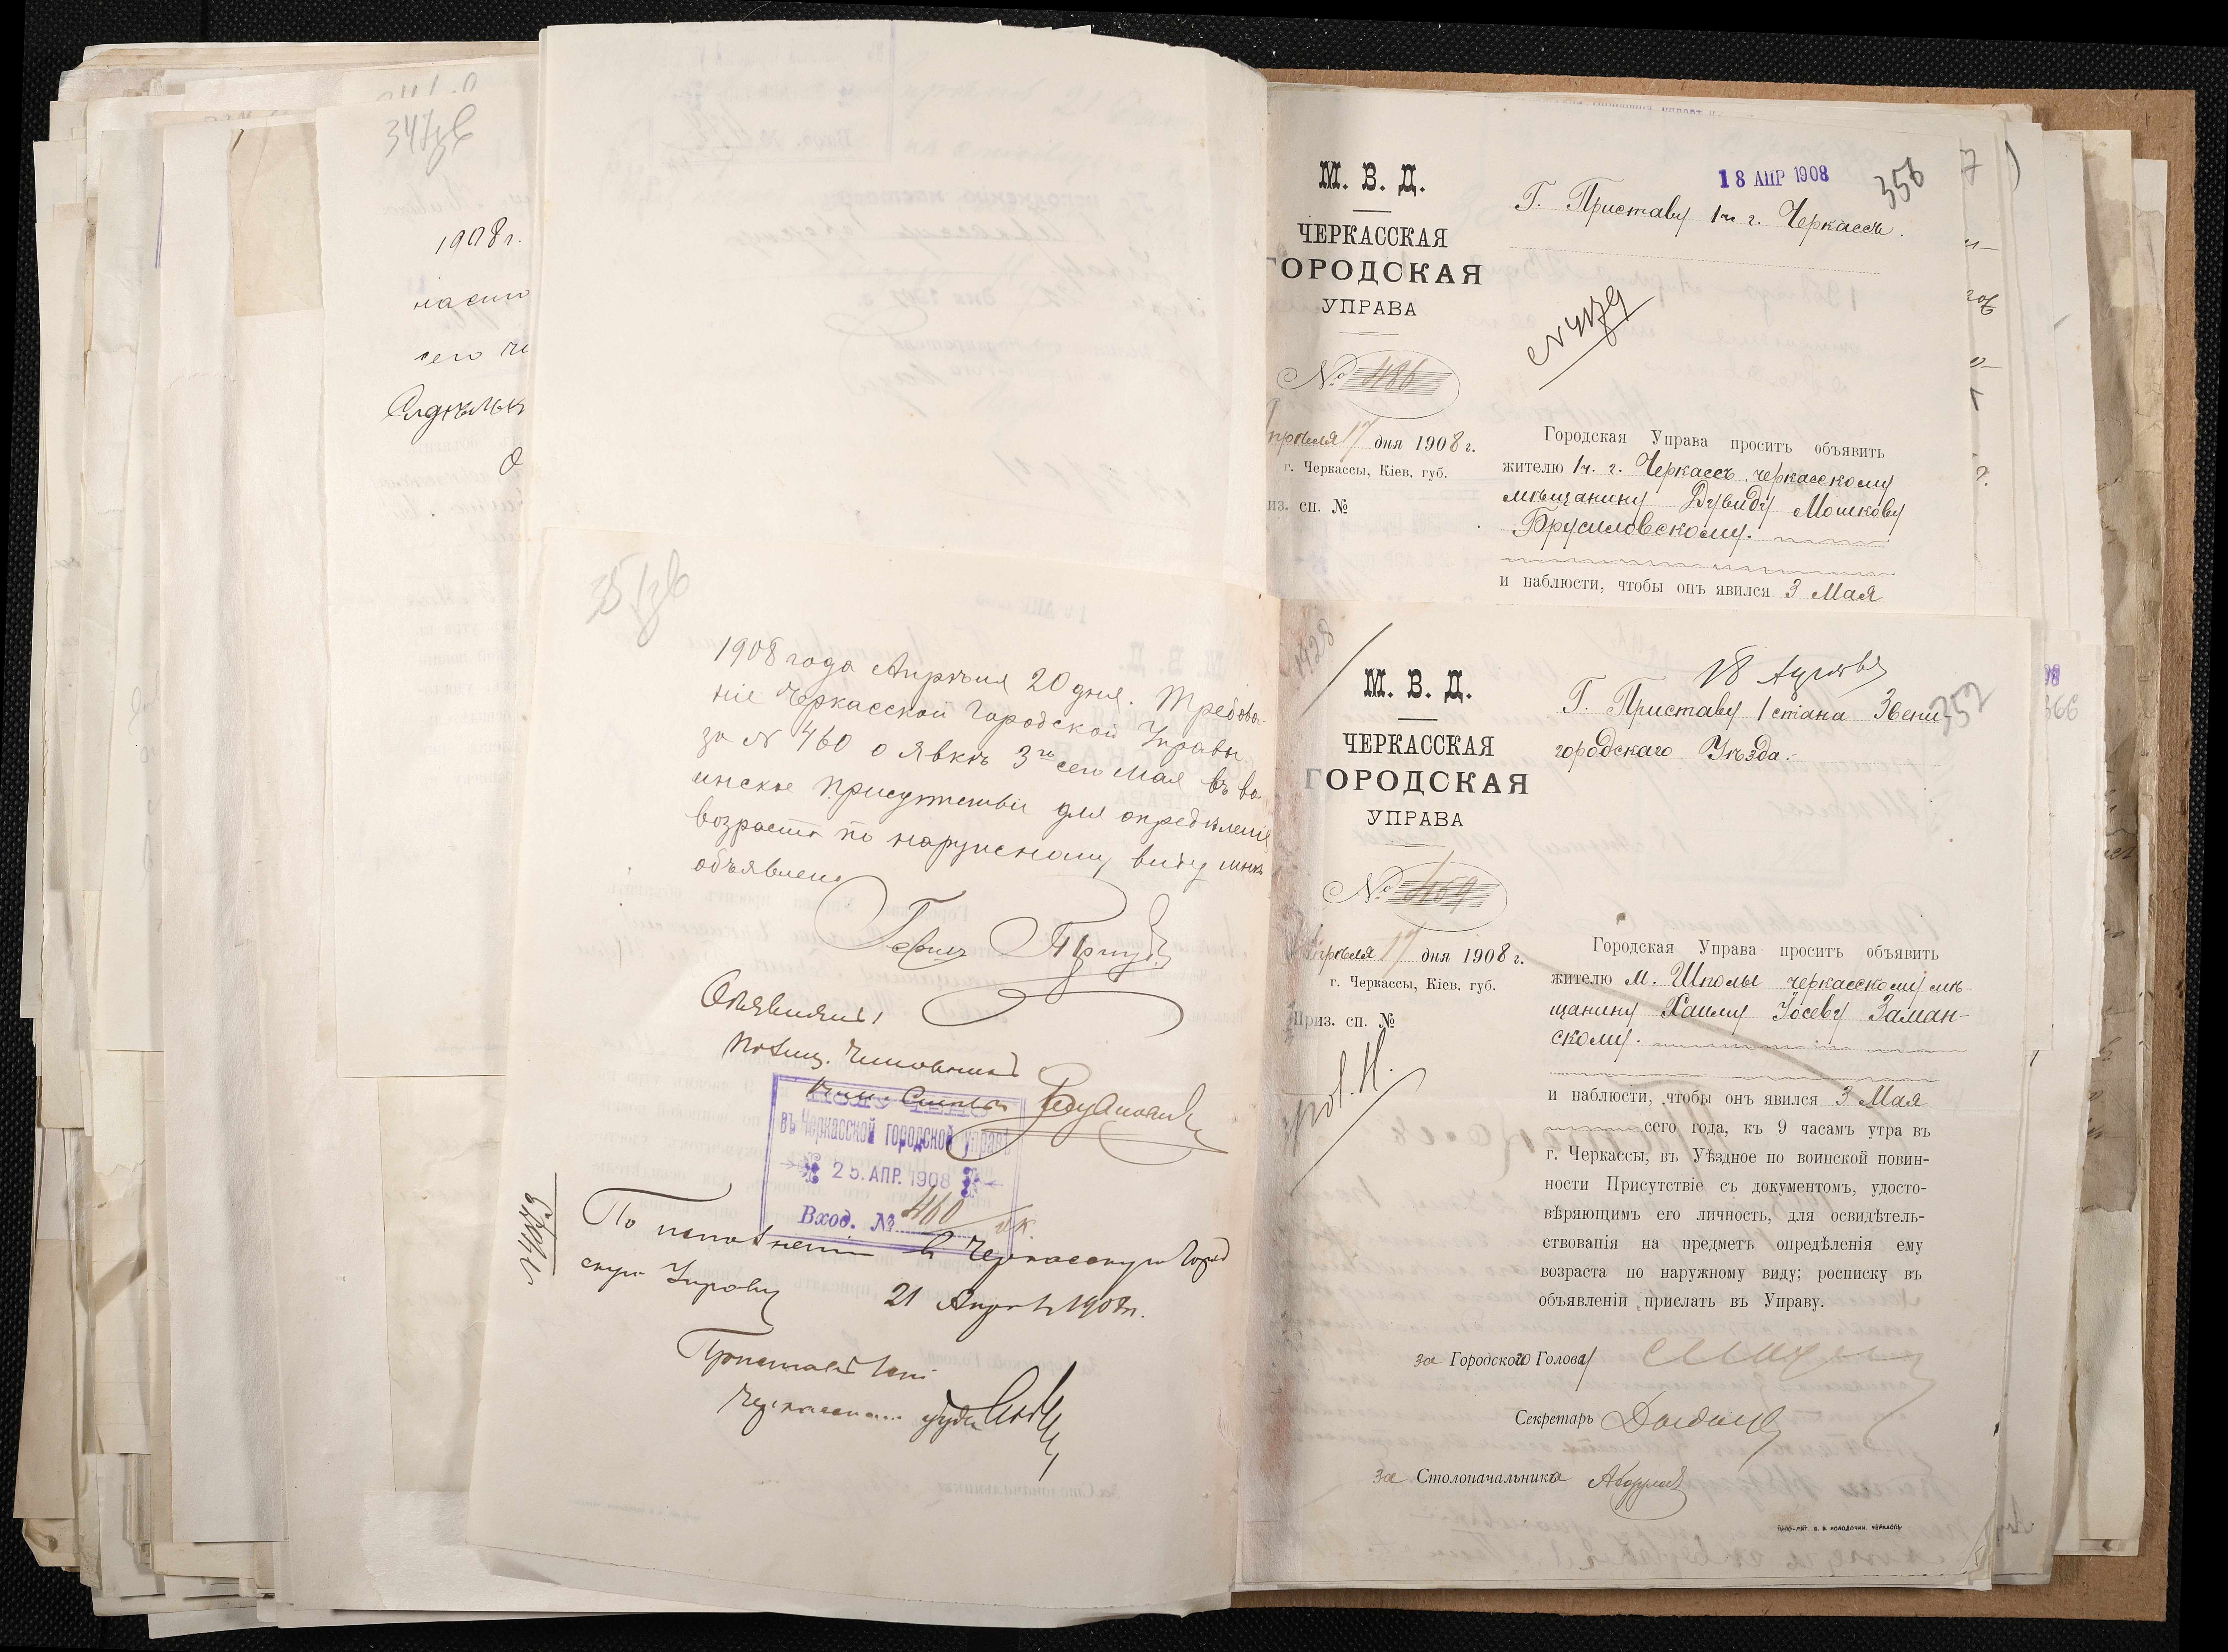 347об
1908 г.
насто
сего
351об
1908 года Апрѣля 20 дня. Требова-
ніе Черкасской Городской Управы
за № 460 о явкѣ 3го сего Мая въ во-
инское присутствіе для опредѣленія
возраста по наружному виду мнѣ
объявлено
Объявилъ
Полиц. Чиновникъ
ПОЛУЧЕНО
въ Черкасской городской управѣ
25. АПР. 1908
Вход. № 460
№ 4073
По исполненіи въ Черкасскую Город
скую Управу
21 Апрѣля 1908 г.
Приставъ 1 ст.
18 АПР 1908
356
М. В. Д.
ЧЕРКАССКАЯ
ГОРОДСКАЯ
УПРАВА
№ 486
Апрѣля 17 дня 1908 г.
г. Черкассы, Кіев. губ.
из. сп. №
Г. Приставу 1 ч. г. Черкассъ.
№ 4179
Городская Управа проситъ объявить
жителю 1 ч. г. Черкассъ черкасскому
мѣщанину Дувиду Мошкову
Брусиловскому.
и наблюсти, чтобы онъ явился 3 Мая
1428
352
М. В. Д.
ЧЕРКАССКАЯ
ГОРОДСКАЯ
УПРАВА
№ 459
Апрѣля 17 дня 1908 г.
г. Черкассы, Кіев. губ.
Приз. сп. №
Г. Приставу 1 стана Звени-
городскаго Уѣзда.
Городская Управа проситъ объявить
жителю м. Шполы черкасскому мѣ-
щанину Хаиму Іосеву Заман-
скому.
и наблюсти, чтобы онъ явился 3 Мая
сего года, къ 9 часамъ утра въ
г. Черкассы, въ Уѣздное по воинской повин-
ности Присутствіе съ документомъ, удосто-
вѣряющимъ его личность, для освидѣтель-
ствованія на предметъ опредѣленія ему
возраста по наружному виду; росписку въ
объявленіи прислать въ Управу.
за Городского Голову
Секретарь
за Столоначальника
ТИПО-ЛИТ. В. В. КОЛОДОЧКИ. ЧЕРКАССЫ
366